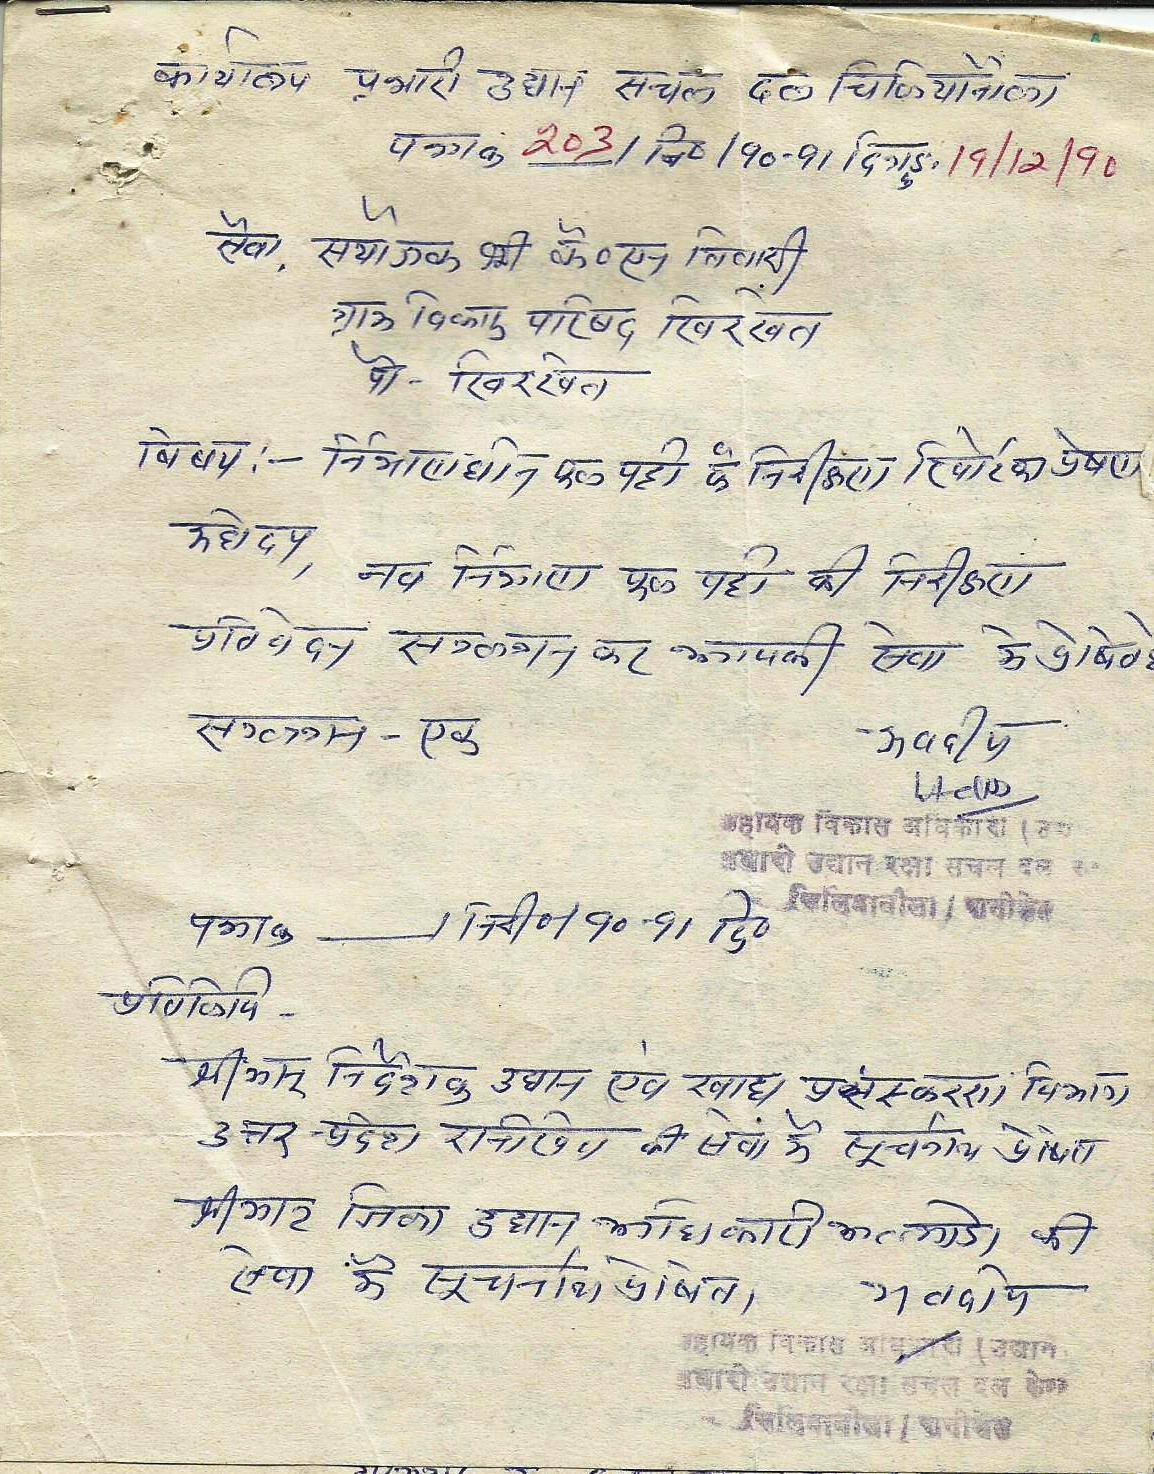 कार्यालय प्रभारी उद्यान सचल दल चिलियानौला
पत्रांक 203 / नि0 / 90-91 दिनाङ्क 19/12/90
सेवा, संयोजक श्री के0 एन तिवारी
ग्राम विकास परिषद खिरखेत
पो - खिरखेत
विषय :- निर्माणाधीन फल पट्टी के निरीक्षण रिपोर्ट का प्रेषण
महोदय,
नव निर्माण फल पट्टी की निरीक्षण
प्रतिवेदन संलग्न कर आपकी सेवा में प्रेषित है
संलग्न - एक
भवदीय
सहायक विकास अधिकारी (उद्या
प्रभारी उद्यान रक्षा सचल दल
चिलियानौला / रानीखेत
पत्रांक / निरी0 / 90-91 दि0
प्रतिलिपि -
श्रीमान् निदेशक उद्यान एंव खाद्य प्रसंस्करण विभाग
उत्तर प्रदेश रानीखेत की सेवा में सूचनार्थ प्रेषित
श्रीमान जिला उद्यान अधिकारी अल्मोड़ा की
सेवा में सूचनार्थ प्रेषित।
भवदीय
सहायक विकास अधिकारी (उद्यान
प्रभारी उद्यान रक्षा सचल दल केन्द्र
चिलियानौला / रानीखेत